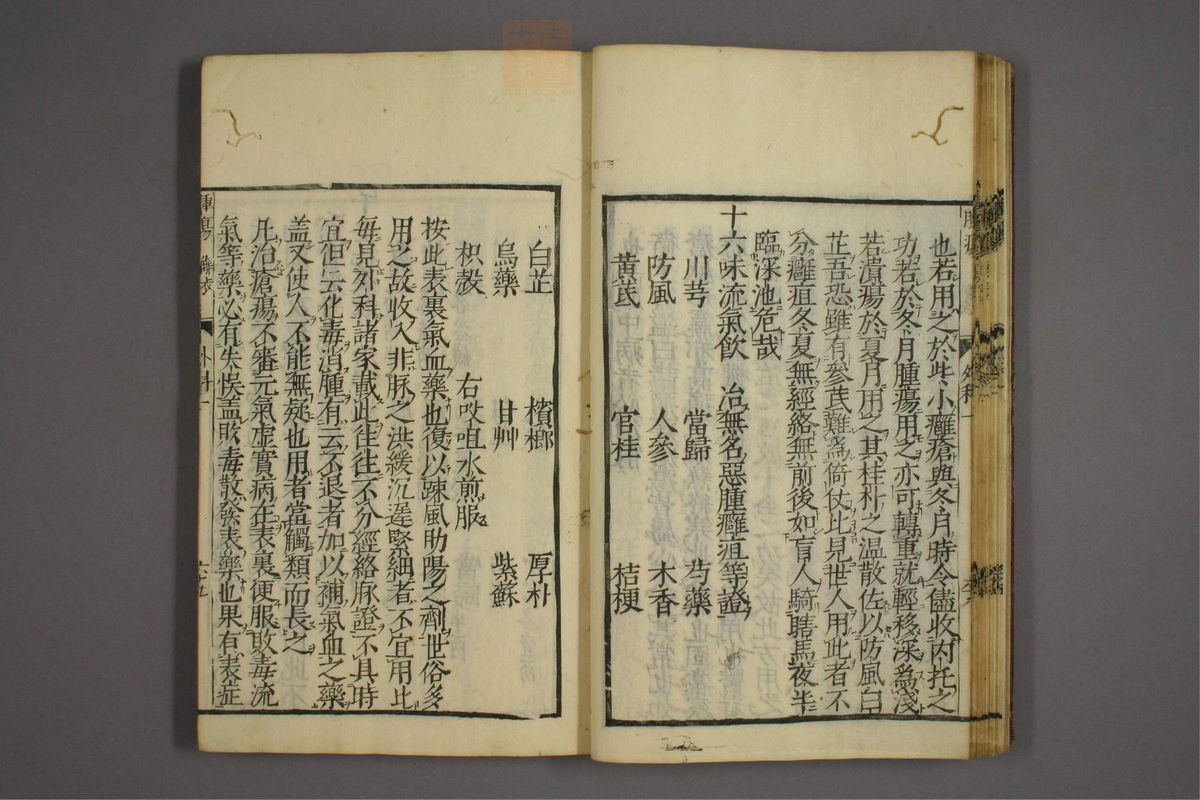 也若用之於些小癰瘡與冬月時令儘收内托之
功若於冬月腫瘍用之亦可轉重就輕移深為淺
若潰瘍於夏月用之其桂朴之温散佐以防風白
芷吾恐雖有參芪難為倚仗比見世人用此者不
分癰疽冬夏無經絡無前後如盲人騎瞎馬夜半
臨深池危哉
十六味流氣飲 治無名惡腫癰疽等證
川芎 當歸 芍藥
防風 人參 木香
黄芪 官桂 桔梗
白芷 檳榔 厚朴
烏藥 甘艸 紫蘇
枳殼 右㕮咀水煎服
按此表裏氣血藥也復以疎風助陽之劑世俗多
用之故收入非脉之洪緩沉遲緊細者不宜用此
毎見外科諸家載此往往不分經絡脉證不具時
宜但云化毒消腫有云不退者加以補氣血之藥
盖又使人不能無疑也用者當觸類而長之
凡治瘡瘍不審元氣虚實病在表裏便服敗毒流
氣等藥必有失悞盖敗毒散發表藥也果有表症
外科一